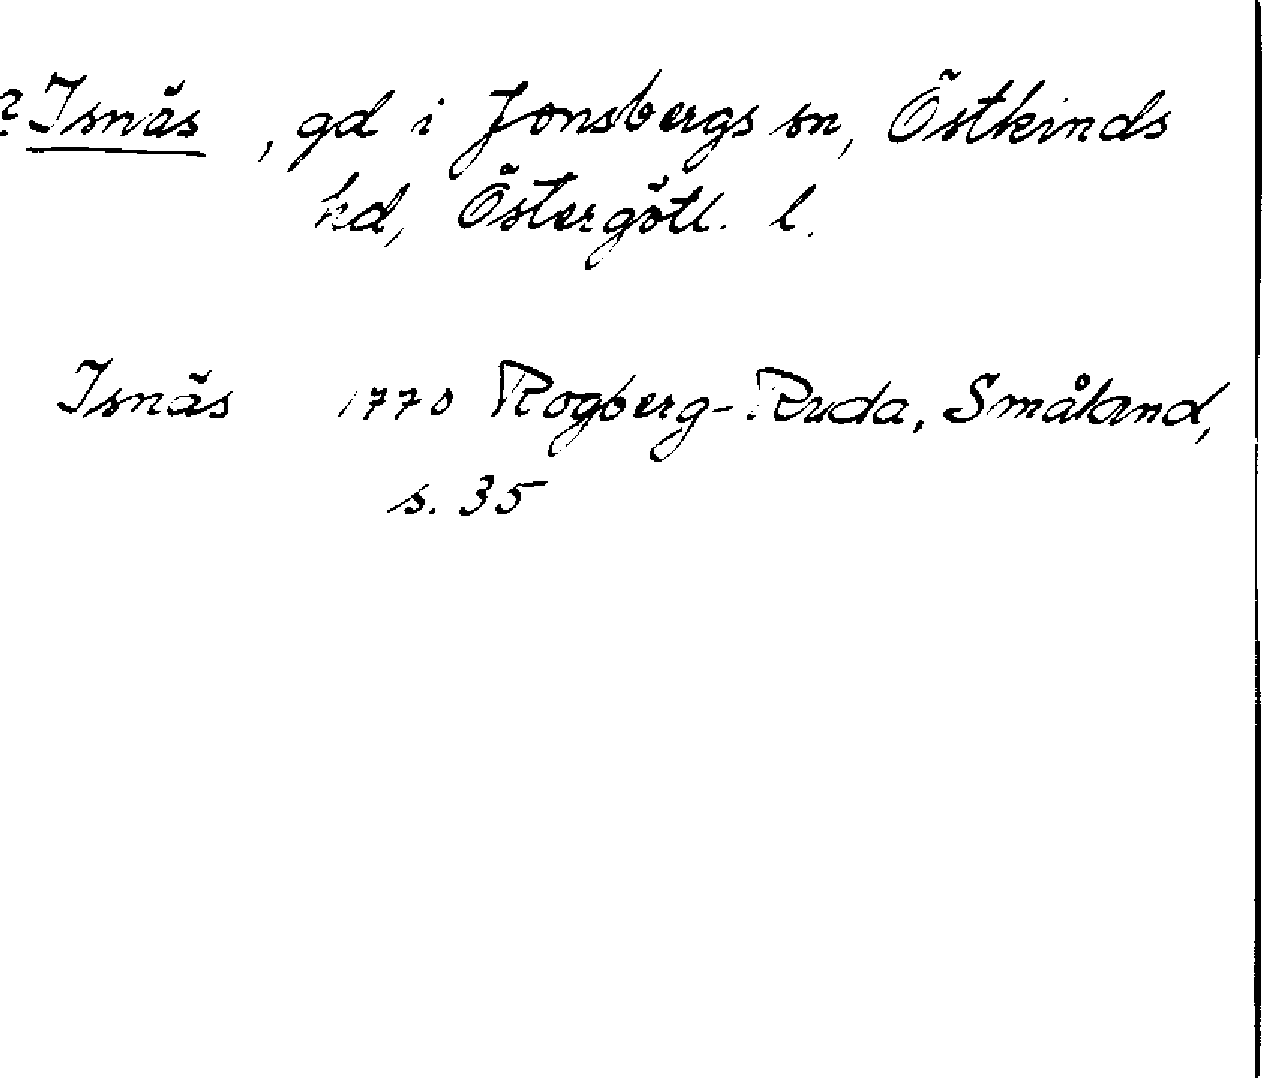 ? Isnäs, gd i Jonsbergs sn, Östkinds
hd, Östergötl. l.
Isnäs 1770 Rogberg-Ruda, Småland,
s. 35